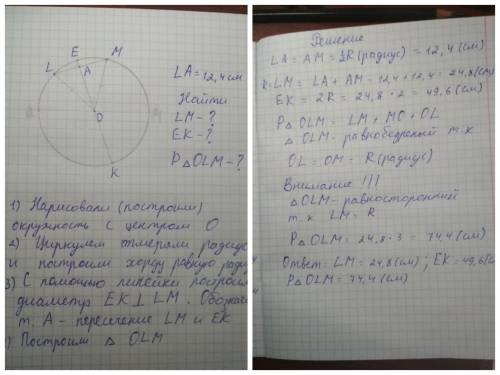 E
M
L
A
O
K
LA = 12,4 см
Найти
LM - ?
EK - ?
P△OLM - ?
1) Нарисовали (построили)
окружность с центром O
2) Циркулем отмеряли радиус
и построили хорду равную
3) С помощью линейки
диаметр EK ⊥ LM.
т. A - пересечение LM и EK
) Построим △ OLM
Решение
LA = AM = R (радиус) = 12,4 (см)
R = LM = LA + AM = 12,4 + 12,4 = 24,8 (см)
EK = 2R = 24,8 · 2 = 49,6 (см)
P△OLM = LM + MO + OL
△ OLM - равнобедренный т.к
OL = OM = R (радиус)
Внимание !!!
△OLM - равносторонний
т.к LM = R
P△OLM = 24,8 · 3 = 74,4 (см)
Ответ: LM = 24,8 (см) ; EK = 49,6 (см)
P△OLM = 74,4 (см)